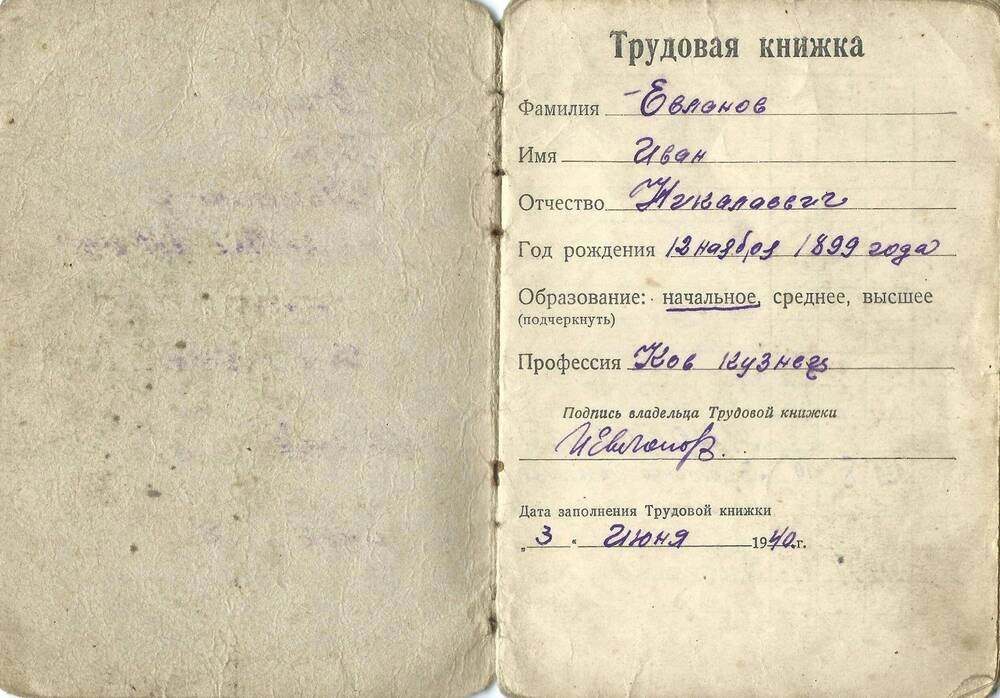 Трудовая книжка
Фамилия Евланов
Имя Иван
Отчество Никалаевич
Год рождения 12 наября 1899 года
Образование: начальное, среднее, высшее
(подчеркнуть)
Профессия Ков кузнец
Подпись владельца Трудовой книжки
ИЕвланов.
Дата заполнения Трудовой книжки
„3“ Июня 1940 г.